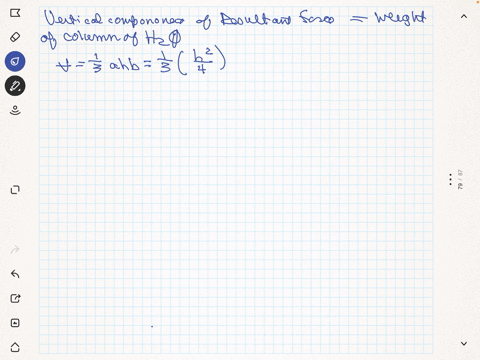 Vertical component of Resultant Force = weight
of column of H2O
V = 1/3 ahb = 1/3 (h²/4)
79 / 87